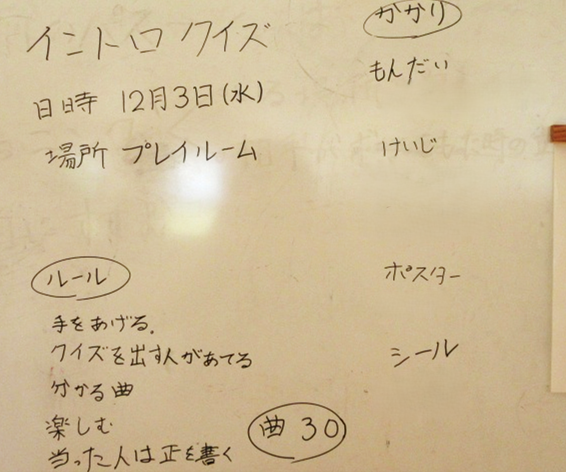 イントロクイズ
日日時 12月3日(水)
場所 プレイルーム
ルール
手をあげる.
クイズを出す人があてる
分かる曲
楽しむ
当った人は正を書く
曲 30
かかり
もんだい
けいじ
ポスター
シール